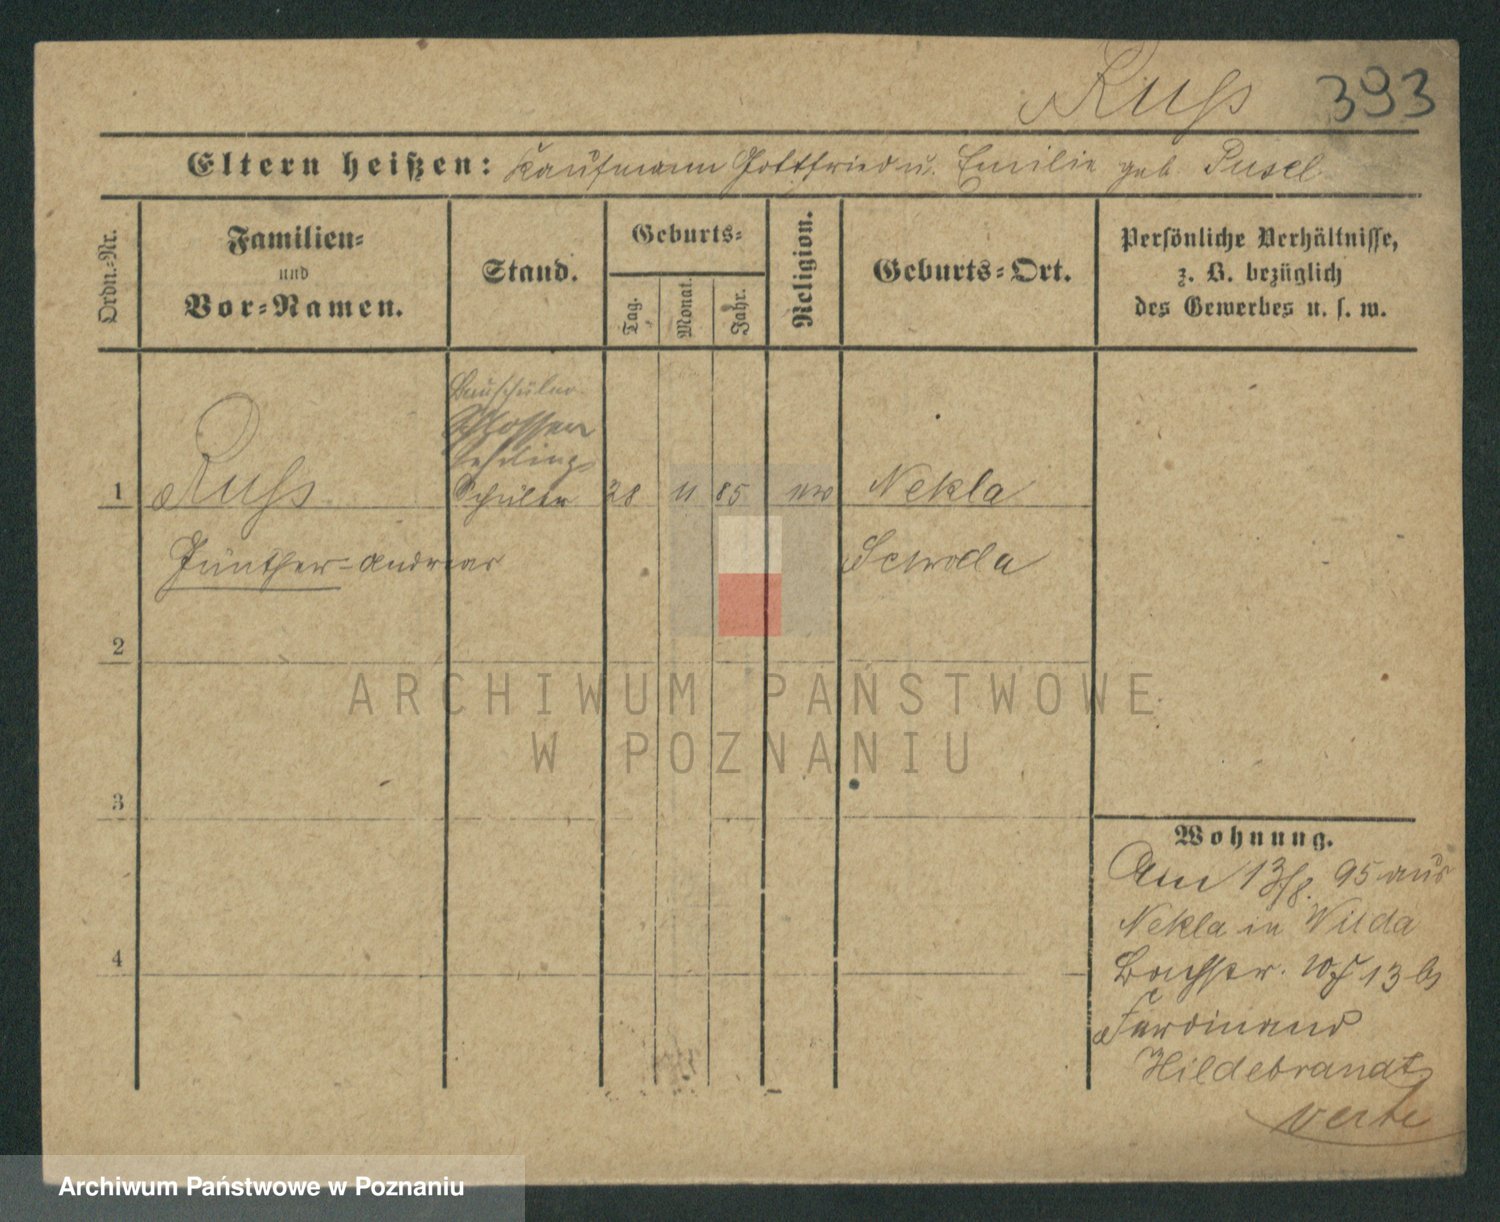 Ruß 393
Eltern heißen: Kaufmann Gottfried u. Emilie geb. Pusel
Ordn.-Nr.
Familien-
und
Vor-Namen.
Stand.
Geburts-
Tag.
Monat.
Jahr.
Religion.
Geburts-Ort.
Persönliche Verhältnisse,
z. B. bezüglich
des Gewerbes u. s. w.
Bauschüler
Schlosser
Lehrling
1 Ruß Schüler 28 11 85 ev Nekla
Günther-Andreas Schroda
2
3
4
Wohnung.
Am 13/8. 95 aus
Nekla in Wilda
Bachstr. 13 bs
Ferdinand
Hildebrandt
verte
ARCHIWUM PAŃSTWOWE
W POZNANIU
Archiwum Państwowe w Poznaniu